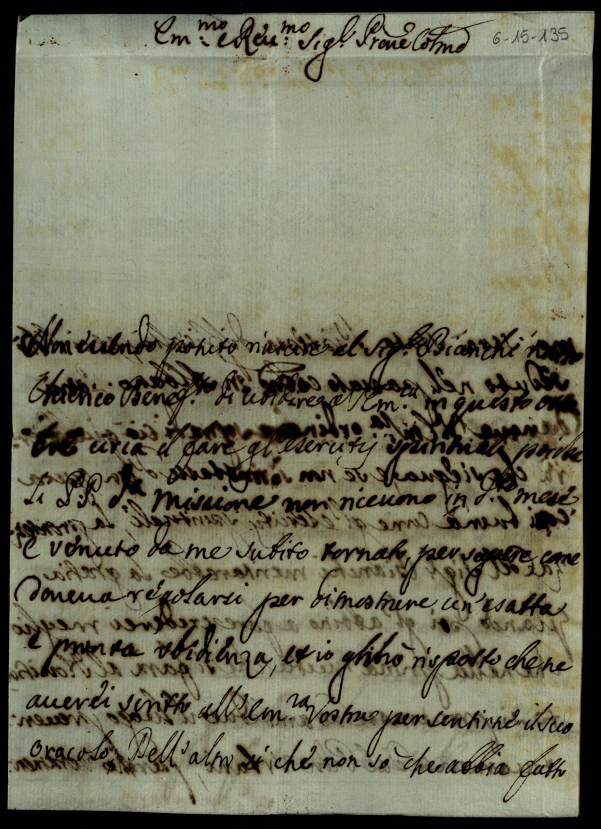 Em.mo e Reu.mo Sig.r Prone Colmo
6-15-135
Non essendo potuto riuscire al Sig.r Bianchi
Chierico Benef.to di ubidire a l'Em.za in questo
circa il fare gl'esercitij spirituali perche
li PP. della missione non riceuono in q.to mese
è venuto da me subito tornato, per sapere come
doueua regolarsi per dimostrare un'esatta
e pronta ubidienza, et io gli hò risposto che ne
auerei scritto all'Em.za Vostra per sentirne il suo
oracolo. Dell'altro si che non sò che abbia fatto